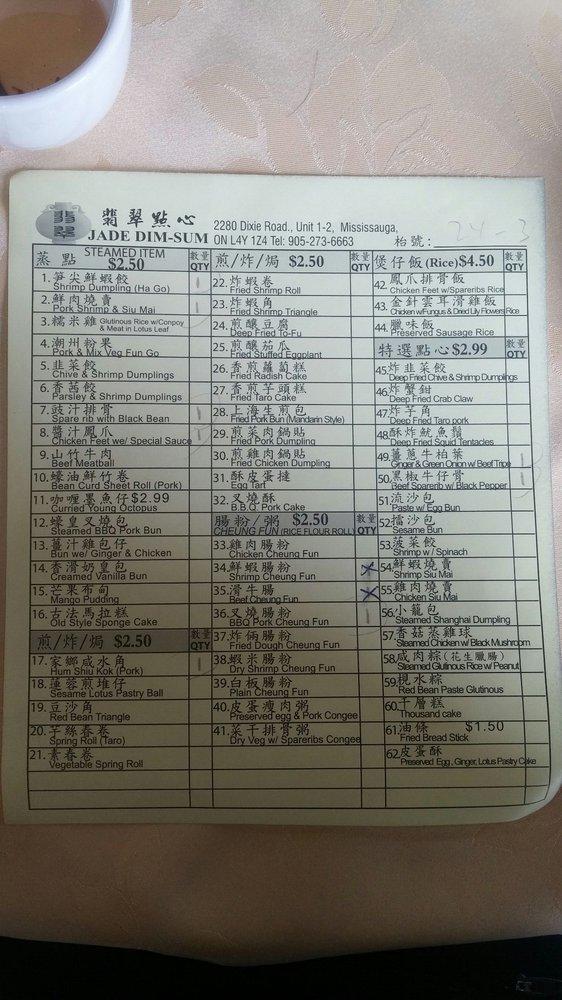 翡翠
翡翠點心
JADE DIM-SUM
2280 Dixie Road., Unit 1-2, Mississauga,
ON L4Y 1Z4 Tel: 905-273-6663
枱號:
24-3
蒸點 STEAMED ITEM $2.50 數量 QTY
1. 笋尖鮮蝦餃
Shrimp Dumpling (Ha Go)
2. 鮮肉燒賣
Pork Shrimp & Siu Mai
3. 糯米雞 Glutinous Rice w/Conpoy
& Meat in Lotus Leaf
4. 潮州粉果
Pork & Mix Veg Fun Go
5. 韭菜餃
Chive & Shrimp Dumplings
6. 香茜餃
Parsley & Shrimp Dumplings
7. 豉汁排骨
Spare rib with Black Bean
8. 醬汁鳳爪
Chicken Feet we/ Special Sauce
9. 山竹牛肉
Beef Meatball
10. 蠔油鮮竹卷
Bean Curd Sheet Roll (Pork)
11. 咖喱墨魚仔 $2.99
Curried Young Octopus
12. 蠔皇叉燒包
Steamed BBQ Pork Bun
13. 薑汁雞包仔
Bun we/ Ginger & Chicken
14. 香滑奶皇包
Creamed Vanilla Bun
15. 芒果布甸
Mango Pudding
16. 古法馬拉糕
Old Style Sponge Cake
煎/炸/焗 $2.50 數量 QTY
17. 家鄉咸水角
Hum Shiu Kok (Pork)
18. 蓮蓉煎堆仔
Sesame Lotus Pastry Ball
19. 豆沙角
Red Bean Triangle
20. 芋絲春卷
Spring Roll (Taro)
21. 素春卷
Vegetable Spring Roll
煎/炸/焗 $2.50 數量 QTY
22. 炸蝦卷
Fried Shrimp Roll
23. 炸蝦角
Fried Shrimp Triangle
24. 煎釀豆腐
Deep Fried To-Fu
25. 煎釀茄瓜
Fried Stuffed Eggplant
26. 香煎蘿蔔糕
Fried Radish Cake
27. 香煎芋頭糕
Fried Taro Cake
28. 上海生煎包
Fried Pork Bun (Mandarin Style)
29. 煎菜肉鍋貼
Fried Pork Dumpling
30. 煎雞肉鍋貼
Fried Chicken Dumpling
31. 酥皮蛋撻
Egg Tart
32. 叉燒酥
B.B.Q. Pork Cake
腸粉/粥 $2.50 數量
CHEUNG FUN (RICE FLOUR ROLL) QTY
33. 雞肉腸粉
Chicken Cheung Fun
34. 鮮蝦腸粉
Shrimp Cheung Fun
35. 滑牛腸
Beef Cheung Fun
36. 叉燒腸粉
BBQ Pork Cheung Fun
37. 炸倆腸粉
Fried Dough Cheung Fun
38. 蝦米腸粉
Dry Shrimp Cheung Fun
39. 白板腸粉
Plain Cheung Fun
40. 皮蛋瘦肉粥
Preserved egg & Pork Congee
41. 菜干排骨粥
Dry Veg w/ Spareribs Congee
煲仔飯 (Rice) $4.50 數量 QTY
42. 鳳爪排骨飯
Chicken Feet w/Spareribs Rice
43. 金針雲耳滑雞飯
Chicken w/Fungus & Dried Lily Flowers Rice
44. 臘味飯
Preserved Sausage Rice
特選點心 $2.99 數量 QTY
45. 炸韭菜餃
Deep Fried Chive & Shrimp Dumplings
46. 炸蟹鉗
Deep Fried Crab Claw
47. 炸芋角
Deep Fried Taro pork
48. 酥炸魷魚鬚
Deep Fried Squid Tentacles
49. 薑蔥牛柏葉
Ginger & Green Onion w/ Beef Tripe
50. 黑椒牛仔骨
Beef Sparerib w/ Black Pepper
51. 流沙包
Paste w/ Egg Bun
52. 擂沙包
Sesame Bun
53. 菠菜餃
Shrimp w/ Spinach
54. 鮮蝦燒賣
Shrimp Siu Mai
55. 雞肉燒賣
Chicken Siu Mai
56. 小籠包
Steamed Shanghai Dumpling
57. 香菇蒸雞球
Steamed Chicken w/ Black Mushroom
58. 咸肉粽 (花生臘腸)
Steamed Glutinous Rice w/ Peanut
59. 梘水粽
Red Bean Paste Glutinous
60. 千層糕
Thousand cake
61. 油條 $1.50
Fried Bread Stick
62. 皮蛋酥
Preserved Egg, Ginger, Lotus Pastry Cake